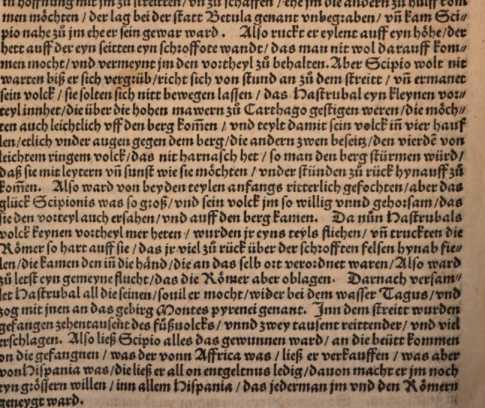 in hoffnung mit jm zů streitten/vn̄ zů schaffen/ehe jm die andern zů hilff kom-
men möchten/der lag bei der statt Betula genant vnbegraben/vn̄ kam Sci-
pio nahe zů jm ehe er sein gewar ward. Also ruckt er eylent auff eyn höhe/der
hett auff der eyn seitten eyn schroffote wandt/das man nit wol darauff kom-
men mocht/vnd vermeynt jm den vortheyl zů behalten. Aber Scipio wolt nit
warten biß er sich vergrüb/richt sich von stund an zů dem streitt/vn̄ ermanet
sein volck/sie solten sich nitt bewegen lassen/das Hastrubal eyn kleynen vor-
teyl innhet/die über die hohen mawern zů Carthago gestigen weren/die möch-
ten auch leichtlich vff den berg kom̄en/vnd teylt damit sein volck in̄ vier hauf
len/etlich vnder augen gegen dem berg/die andern zwen beseitz/den vierdē von
leichtem ringem volck/das nit harnasch het/so man den berg stürmen würd/
daß sie mit leytern vn̄ sunst wie sie möchten/vnder stünden zů rück hynauff zů
kom̄en. Also ward von beyden teylen anfangs ritterlich gefochten/aber das
glück Scipionis was so groß/vnd sein volck jm so willig vnnd gehorsam/das
sie den vorteyl auch ersahen/vnd auff den berg kamen. Da nůn Hastrubals
volck keynen vortheyl mer heten/wurden jr eyns teyls fliehen/vn̄ truckten die
Römer so hart auff sie/das jr viel zů rück über der schrofften felsen hynab fie-
len/die kamen den in̄ die händ/die an das selb ort verordnet waren/Also ward
zů letst eyn gemeyne flucht/das die Römer aber oblagen. Darnach versam-
let Hastrubal all die seinen/souil er mocht/wider bei dem wasser Tagus/vnd
zog mit jnen an das gebirg Montes pyrenei genant. Jnn dem streitt wurden
gefangen zehentausent des fůßuolcks/vnnd zwey tausent reittender/vnd viel
erschlagen. Also ließ Scipio alles das gewunnen ward/an die beütt kommen
on die gefangnen/was der vonn Affrica was/ließ er verkauffen/was aber
von Hispania was/die ließ er all on entgeltnus ledig/dauon macht er jm noch
eyn grössern willen/inn allem Hispania/das jederman jm vnd den Römern
geneygt ward.